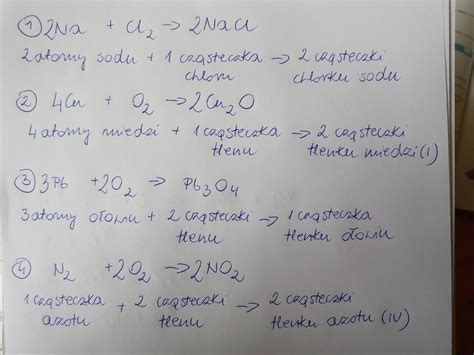 ① 2Na + Cl₂ → 2NaCl
2 atomy sodu + 1 cząsteczka chloru → 2 cząsteczki chlorku sodu
② 4Cu + O₂ → 2Cu₂O
4 atomy miedzi + 1 cząsteczka tlenu → 2 cząsteczki tlenku miedzi (I)
③ 3Pb + 2O₂ → Pb₃O₄
3 atomy ołowiu + 2 cząsteczki tlenu → 1 cząsteczka tlenku ołowiu
④ N₂ + 2O₂ → 2NO₂
1 cząsteczka azotu + 2 cząsteczki tlenu → 2 cząsteczki tlenku azotu (IV)